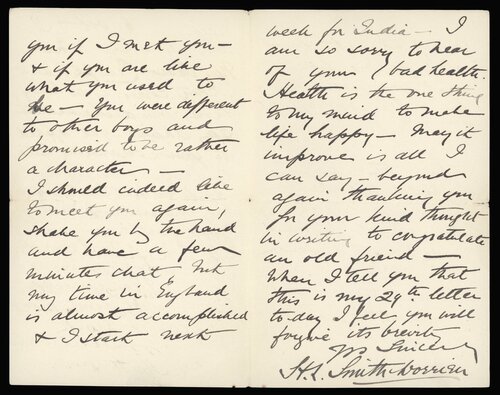 you if I met you –
& if you are like
what you used to
be – You were different
to other boys and
promised to be rather
a character –
I should indeed like
to meet you again,
shake you by the hand
and have a few
minutes chat, but
my time in England
is almost accomplished
& I start next
week for India – I
am so sorry to hear
of your bad health.
Health is the one thing
to my mind to make
life happy – May it
improve is all I
can say – beyond
again thanking you
for your kind thought
in writing to congratulate
an old friend –
When I tell you that
this is my 29th letter
to-day I feel you will
forgive its brevity
Yrs Sincerely
H.L. Smith-Dorrien